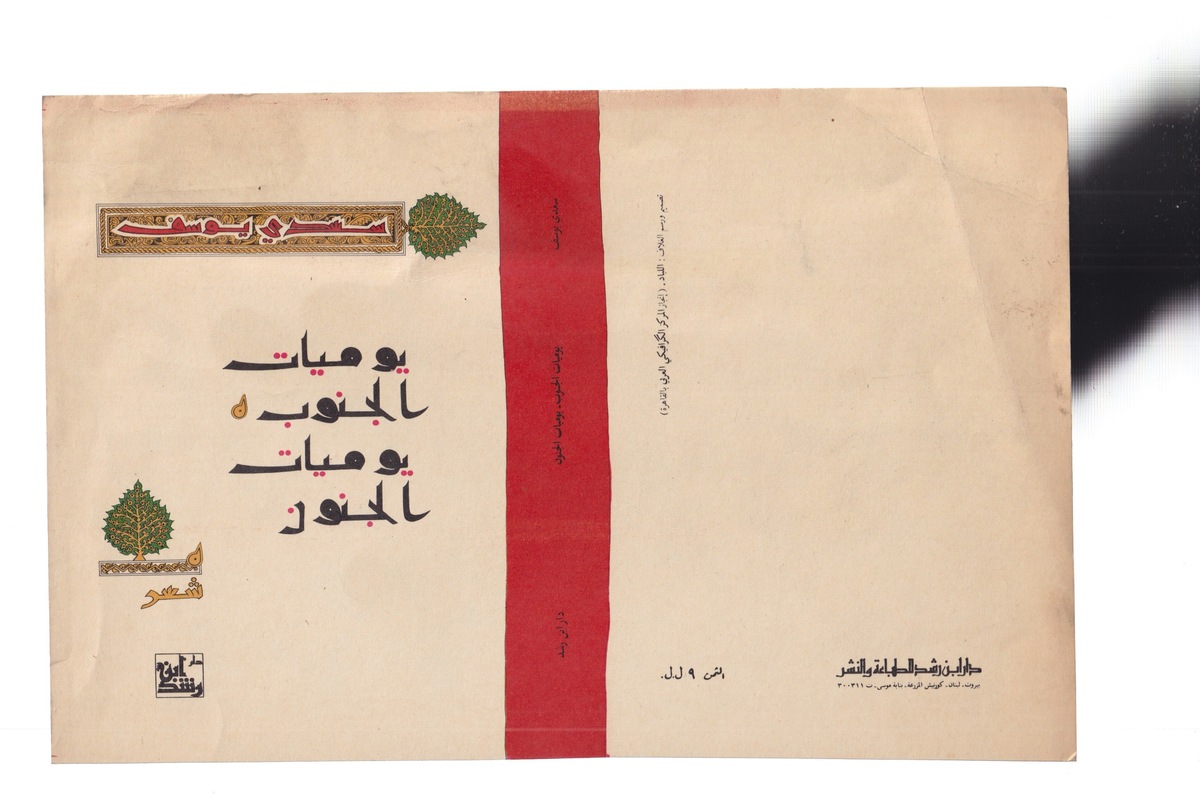 سعدي يوسف
يوميات
الجنوب ،
يوميات
الجنون
شعر
دار
ابن
رشد
سعدي يوسف
يوميات الجنوب، يوميات الجنون
دار ابن رشد
تصميم ورسم الغلاف : اللباد . ( إنجاز المركز الگرافيكي العربي بالقاهرة )
الثمن ٩ ل.ل.
دار ابن رشد للطباعة والنشر
بيروت - لبنان - كورنيش المزرعة - بناية موسى - ت ٣٠٠٣١١